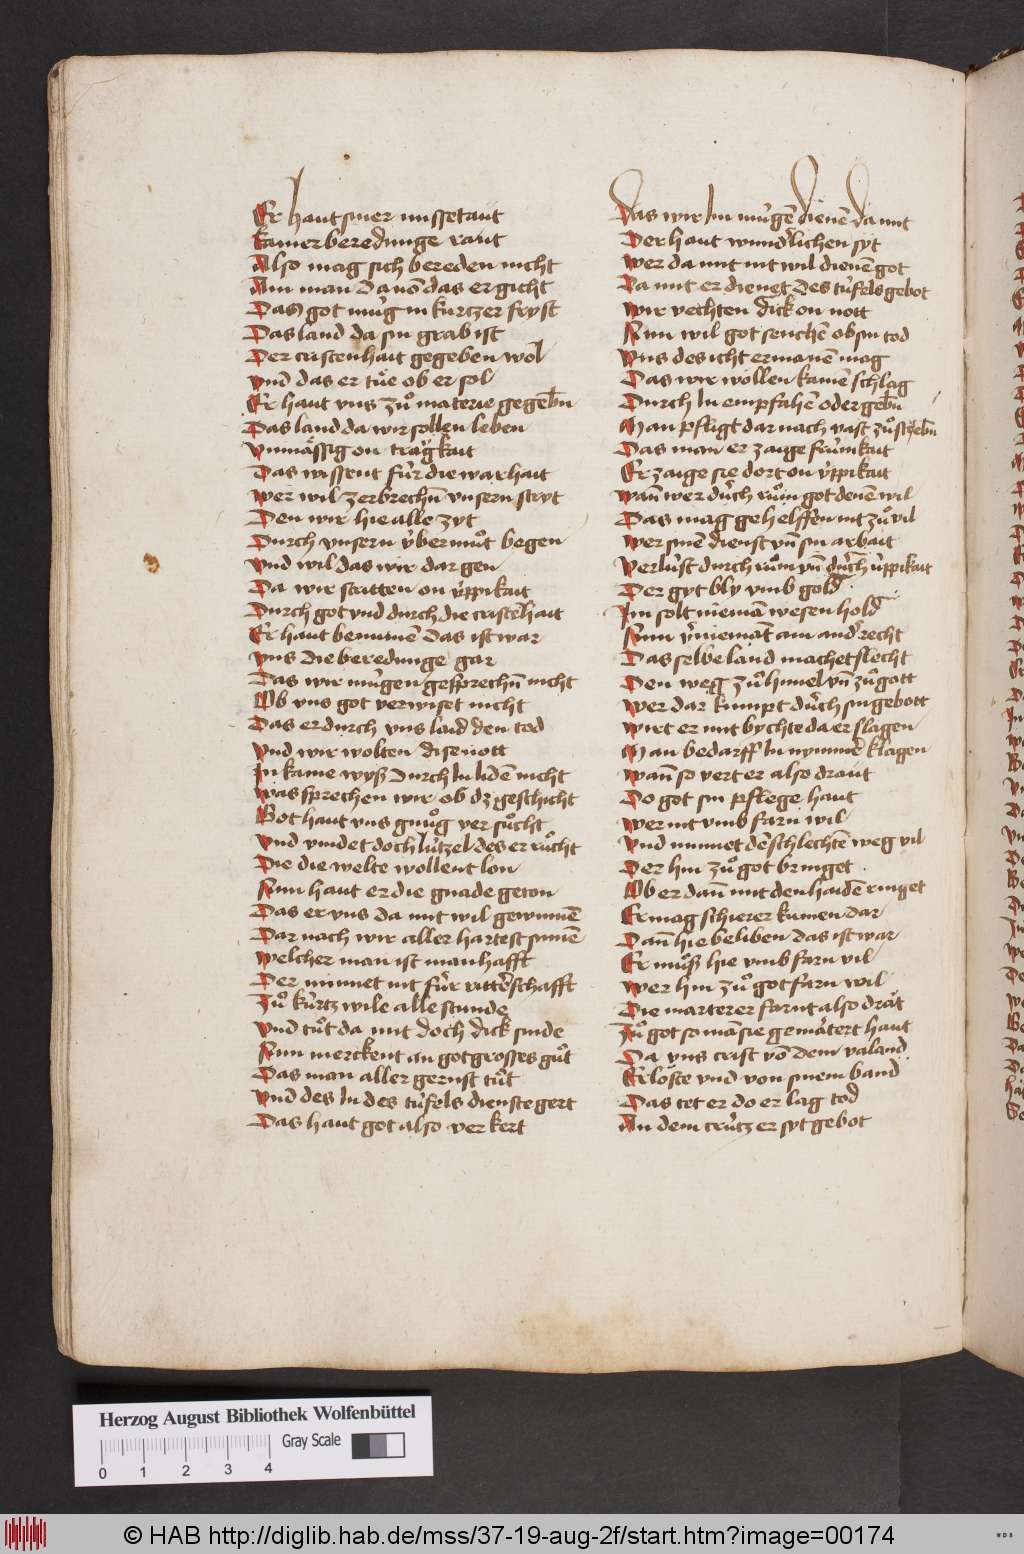 Er haut siner missetaut
kainer beredunge raut
Also mag sich bereden nicht
Am man da vō das er gicht
Das got mu̇g in kurtzer fryst
Das land da sin grab ist
Der cristenhait gegeben wol
vnd das er tu̇e ob er sol
Er haut vns zuͦ materie gegebn̄
Das land da wir sollen leben
vnmässig on tragkait
Das wissent fu̇r die warhait
wer wil zerbrechn̄ vnsern stryt
Den wir hie alle zyt
Durch vnsern v̇bermuͦt begen
vnd wil das wir dar gen
Da wir stritten on v̇ppikait
Durch got vnd durch die cristēhait
Er haut benumē das ist war
vns die beredunge gar
Das wir mu̇gen gesprechn̄ nicht
Ob vns got verwiset nicht
Das er durch vns laid den tod
vnd wir wolten dise nott
In kaine wyß durch In lidē nicht
was sprechen wir ob dz geschicht
Got haut vns gnuͦg versuͦcht
vnd vindet doch lu̇tzel des er ruͦcht
Die die welte wollent lon
Nun haut er die gnade geton
Das er vns da mit wil gewinnē
Dar nach wir aller hartest sinnē
welcher man ist manhafft
Der nimmet nit fu̇r ritterschafft
Zuͦ kurtzwile alle stunde
vnd tuͦt da mit doch dick sunde
Nun merckent an got grosses guͦt
Das man aller gernst tuͦt
vnd des In des tu̇fels dienste gert
Das haut got also verkert
Das wir Im mu̇gē dienē da mit
Der haut wunderlichen syt
wer da mit nit wil dienē got
Da mit er dienet des tu̇fels gebot
wir vechten dick on nott
Nun wil got senchē ob sin tod
vns des icht ermanē mag
Das wir wollen kainē schlag
Durch In empfahē oder gebn̄
Man pfligt dar nach vast zuͦ strebn̄
Das man er zaige fru̇mkait
Er zaige sie dort on v̇ppikait
wan̄ wer durch ruͦm got denē wil
Das mag gehelffen nit zuͦ vil
wer sinē dienst vn̄ sin arbait
verlu̇st durch ruͦm vn̄ durch v̇ppikait
Der gyt bly vmb gold
Im solt niemā wesen hold
Nun v̇niemāt am and recht
Das selbe land machet slecht
Den weg zuͦ himel vn̄ zuͦ gott
wer dar kumpt durch sin gebott
wirt er mit bychte da erslagen
Man bedarff In nymmer klagen
wan̄ so vert er also draut
Do got sin pflege haut
wer nit vmb farn wil
vnd nimmet dē schlechtē weg vil
Der hin zuͦ got bringet
Ob er dan̄ mit den haidē ringet
Er mag schierer kumen dar
Dan̄ hie beliben das ist war
Er muͦß hie vmb farn vil
wer hin zuͦ got farn wil
Die marterer farnt also drät
Zuͦ got so mā sie gemartert haut
Da vns crist vō dem valand
Erloste vnd von sinem band
Das tet er do er lag tod
An dem cru̇tz er syt gebot
Herzog August Bibliothek Wolfenbüttel
Gray Scale
0 1 2 3 4
© HAB http://diglib.hab.de/mss/37-19-aug-2f/start.htm?image=00174